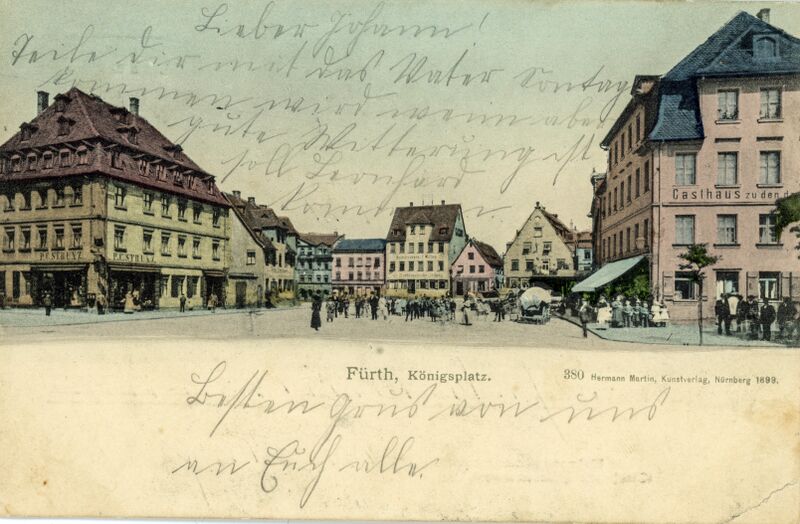 Lieber Johann!
Teile Dir mit das Vater Sontag
kommen wird wenn aber
gute Witterung ist
soll Leonhard
kommen
Gasthaus zu den d
P.C. STRENZ
P.C. STRENZ
Fürth, Königsplatz.
380 Hermann Martin, Kunstverlag, Nürnberg 1899.
Besten Grus von uns
an Euch alle.